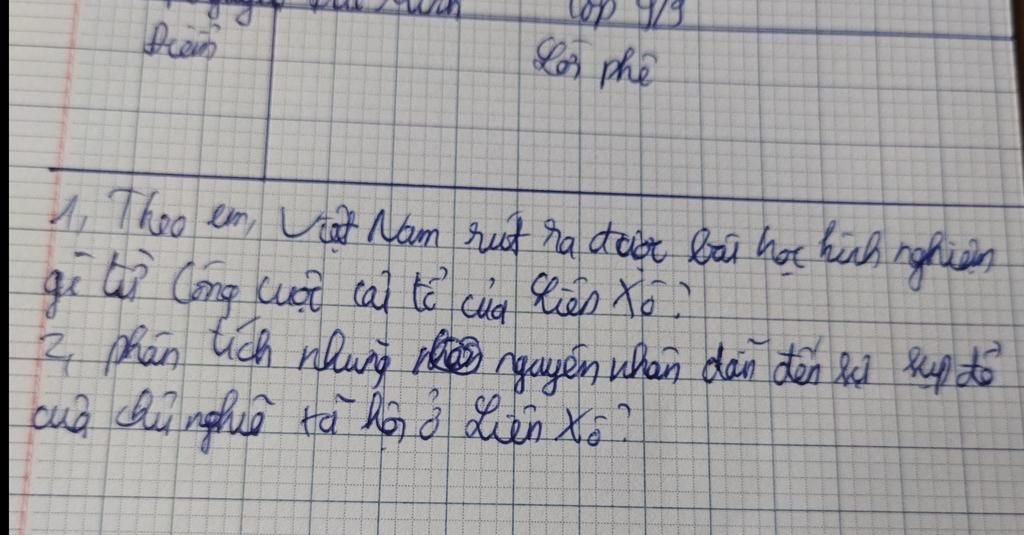 Lớp 9/9
Điểm
Lời phê
1, Theo em, Việt Nam rút ra được bài học kinh nghiệm
gì từ công cuộc cải tổ của Liên Xô?
2, phân tích những nguyên nhân dẫn đến sự sụp đổ
của chủ nghĩa xã hội ở Liên Xô?